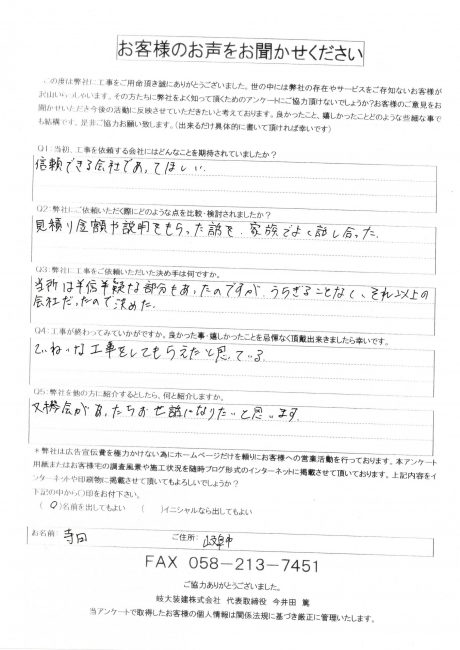 お客様のお声をお聞かせください
この度は弊社に工事をご用命頂き誠にありがとうございました。世の中には弊社の存在やサービスをご存知ないお客様が
沢山いらっしゃいます。その方たちに弊社をよく知って頂くためのアンケートにご協力頂けないでしょうか?お客様のご意見をお
聞かせいただき今後の活動に反映させていただきたいと考えております。良かったこと、嬉しかったことどのような些細な事で
も結構です。是非ご協力お願い致します。(出来るだけ具体的に書いて頂ければ幸いです)
Q1:当初、工事を依頼する会社にはどんなことを期待されていましたか?
信頼できる会社であってほしい.
Q2:弊社にご依頼いただく際にどのような点を比較・検討されましたか?
見積り金額や説明をもらった話を、家族でよく話し合った.
Q3:弊社に工事をご依頼いただいた決め手は何ですか。
当所は半信半疑な部分もあったのですが、うらぎることなく、それ以上の
会社だったので決めた.
Q4:工事が終わってみていかがですか。良かった事・嬉しかったことを忌憚なく頂戴出来きましたら幸いです。
ていねいな工事をしてもらえたと思っている.
Q5:弊社を他の方に紹介するとしたら、何と紹介しますか。
又機会があったらお世話になりたいと思います.
*弊社は広告宣伝費を極力かけない為にホームページだけを頼りにお客様への営業活動を行っております。本アンケート
用紙またはお客様宅の調査風景や施工状況を随時ブログ形式のインターネットに掲載させて頂いております。上記内容をイ
ンターネットや印刷物に掲載させて頂いてもよろしいでしょうか?
下記の中から〇印をお付下さい。
(〇)名前を出してもよい ( )イニシャルなら出してもよい
お名前: 寺田 ご住所: 岐阜市
FAX 058-213-7451
ご協力ありがとうございました。
岐大装建株式会社 代表取締役 今井田 篤
当アンケートで取得したお客様の個人情報は関係法規に基づき厳正に管理いたします。